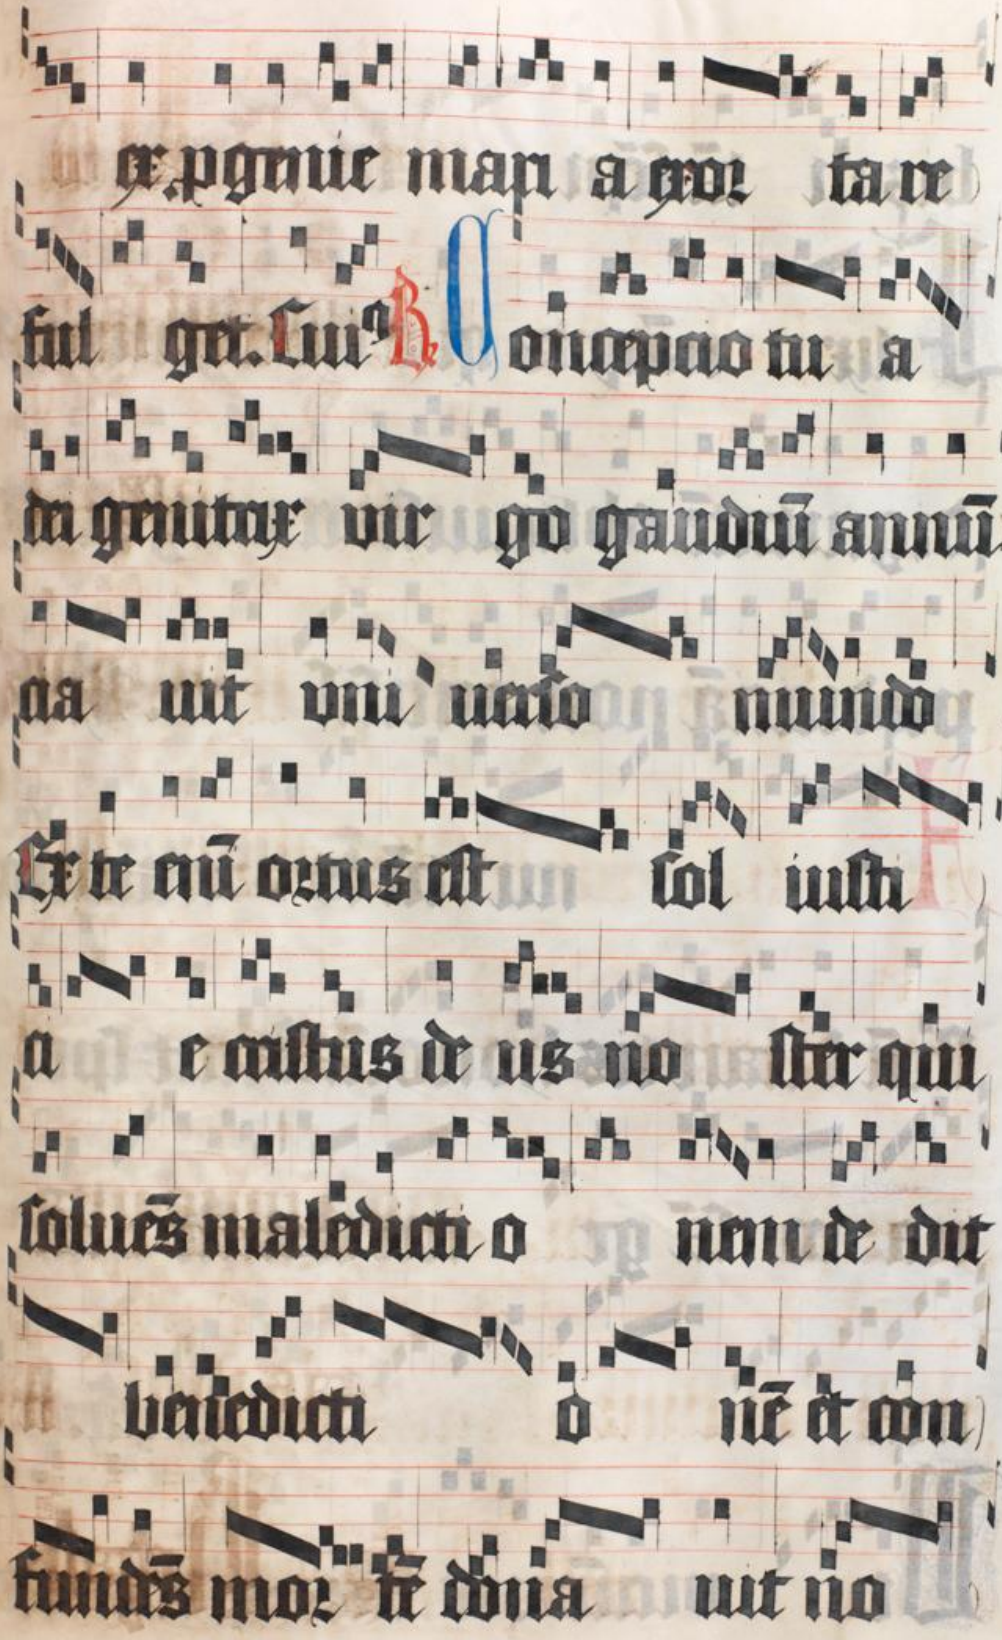 ex pgenie mari a exor ta re
ful get. Cuiꝯ R Concepcio tu a
dei genitrix vir go gaudiū annū
cia uit vni uerso mundo
Ex te eni᷈ ortus est sol iusti
ci e cristus de us no ster qui
soluēs maledicti o nem de dit
benedicti o nē et con
fundēs mor tē dona uit no